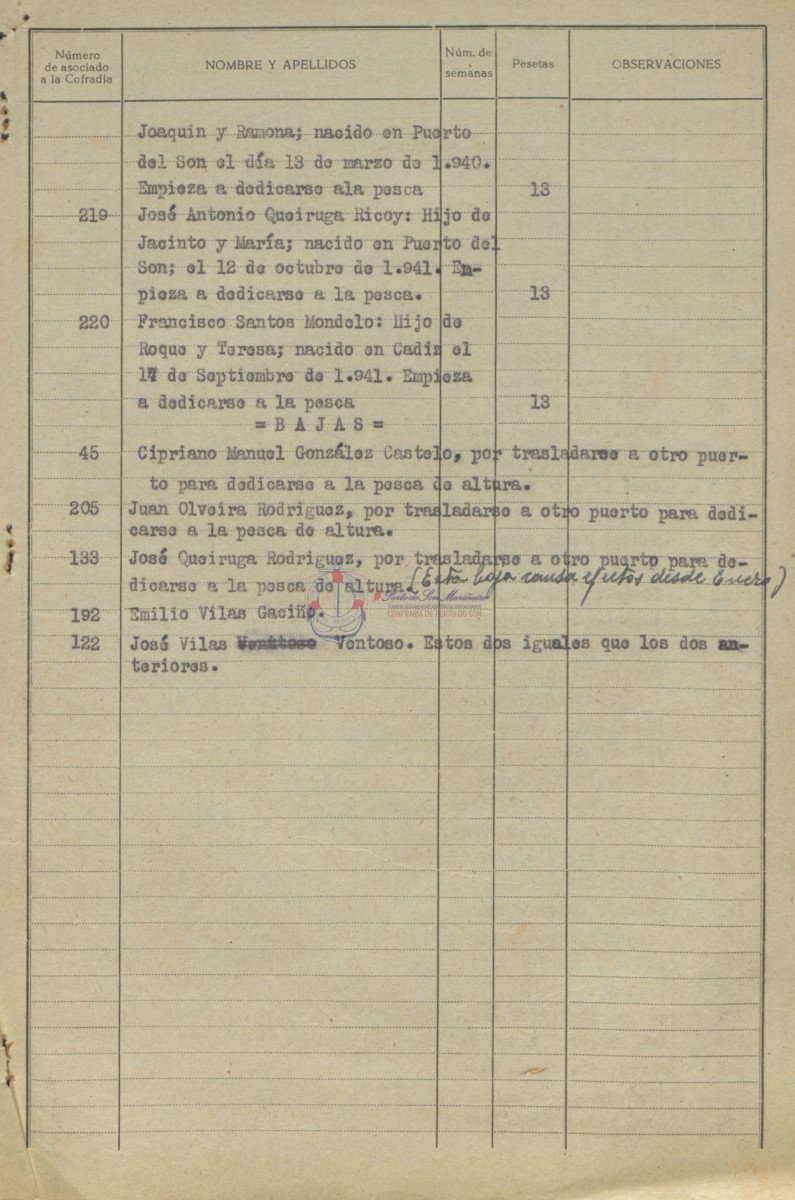 Número de asociado a la Cofradía
NOMBRE Y APELLIDOS
Núm. de semanas
Pesetas
OBSERVACIONES
Joaquin y Ramona; nacido en Puerto
del Son el día 13 de marzo de 1.940.
Empieza a dedicarse ala pesca 13
219 José Antonio Queiruga Ricoy: Hijo de
Jacinto y María; nacido en Puerto del
Son; el 12 de octubre de 1.941. En-
pieza a dedicarse a la pesca. 13
220 Francisco Santos Mondelo: Hijo de
Roque y Teresa; nacido en Cadiz el
17 de Septiembre de 1.941. Empieza
a dedicarse a la pesca 13
= B A J A S =
45 Cipriano Manuel González Castelo, por trasladarse a otro puer-
to para dedicarse a la pesca de altura.
205 Juan Olveira Rodriguez, por trasladarse a otro puerto para dedi-
carse a la pesca de altura.
133 José Queiruga Rodriguez, por trasladarse a otro puerto para de-
dicarse a la pesca de altura. (Esta baja causa efectos desde Enero)
Porto do Son Mariñeiro
CONFRARÍA DE PORTO DO SON
192 Emilio Vilas Gaciño.
122 José Vilas Ventoso. Estos dos iguales que los dos an-
teriores.